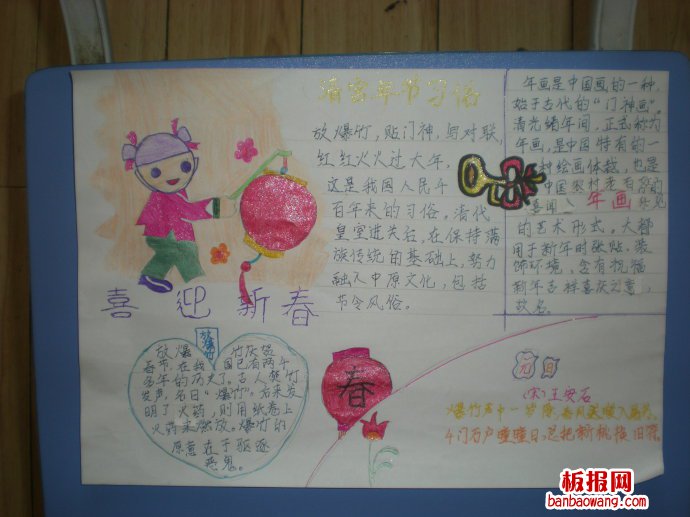 清宫年节习俗
放爆竹，贴门神，写对联，
红红火火过大年，
这是我国人民千
百年来的习俗。清代
皇室进关后，在保持满
族传统的基础上，努力
融入中原文化，包括
节令风俗。
年画是中国画的一种，
始于古代的“门神画”。
清光绪年间，正式称为
年画，是中国特有的一
种绘画体裁，也是
中国农村老百姓的
喜闻
年画
乐见
的艺术形式。大都
用于新年时张贴，装
饰环境，含有祝福
新年吉祥喜庆之意，
故名。
喜迎新春
放爆竹
放爆竹庆贺
春节，在我国已有两千
多年的历史了。古人焚竹
发声，名曰“爆竹”。后来发
明了火药，则用纸卷上
火药来燃放。爆竹的
原意在于驱逐
恶鬼。
春
元日
（宋）王安石
爆竹声中一岁除，春风送暖入屠苏。
千门万户曈曈日，总把新桃换旧符。
板报网
banbaowang.com